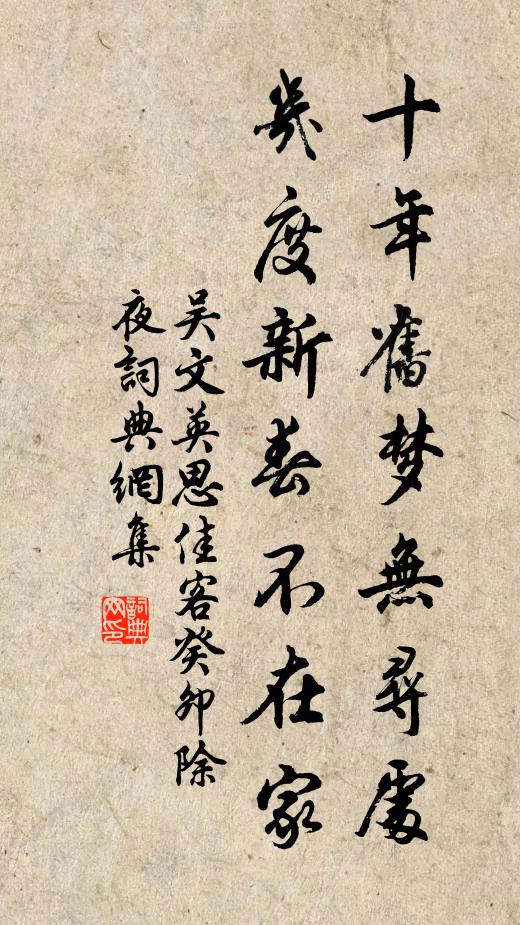 十年舊梦無尋處
幾度新春不在家
吴文英思佳客癸卯除
夜詞典網集
詞典网印